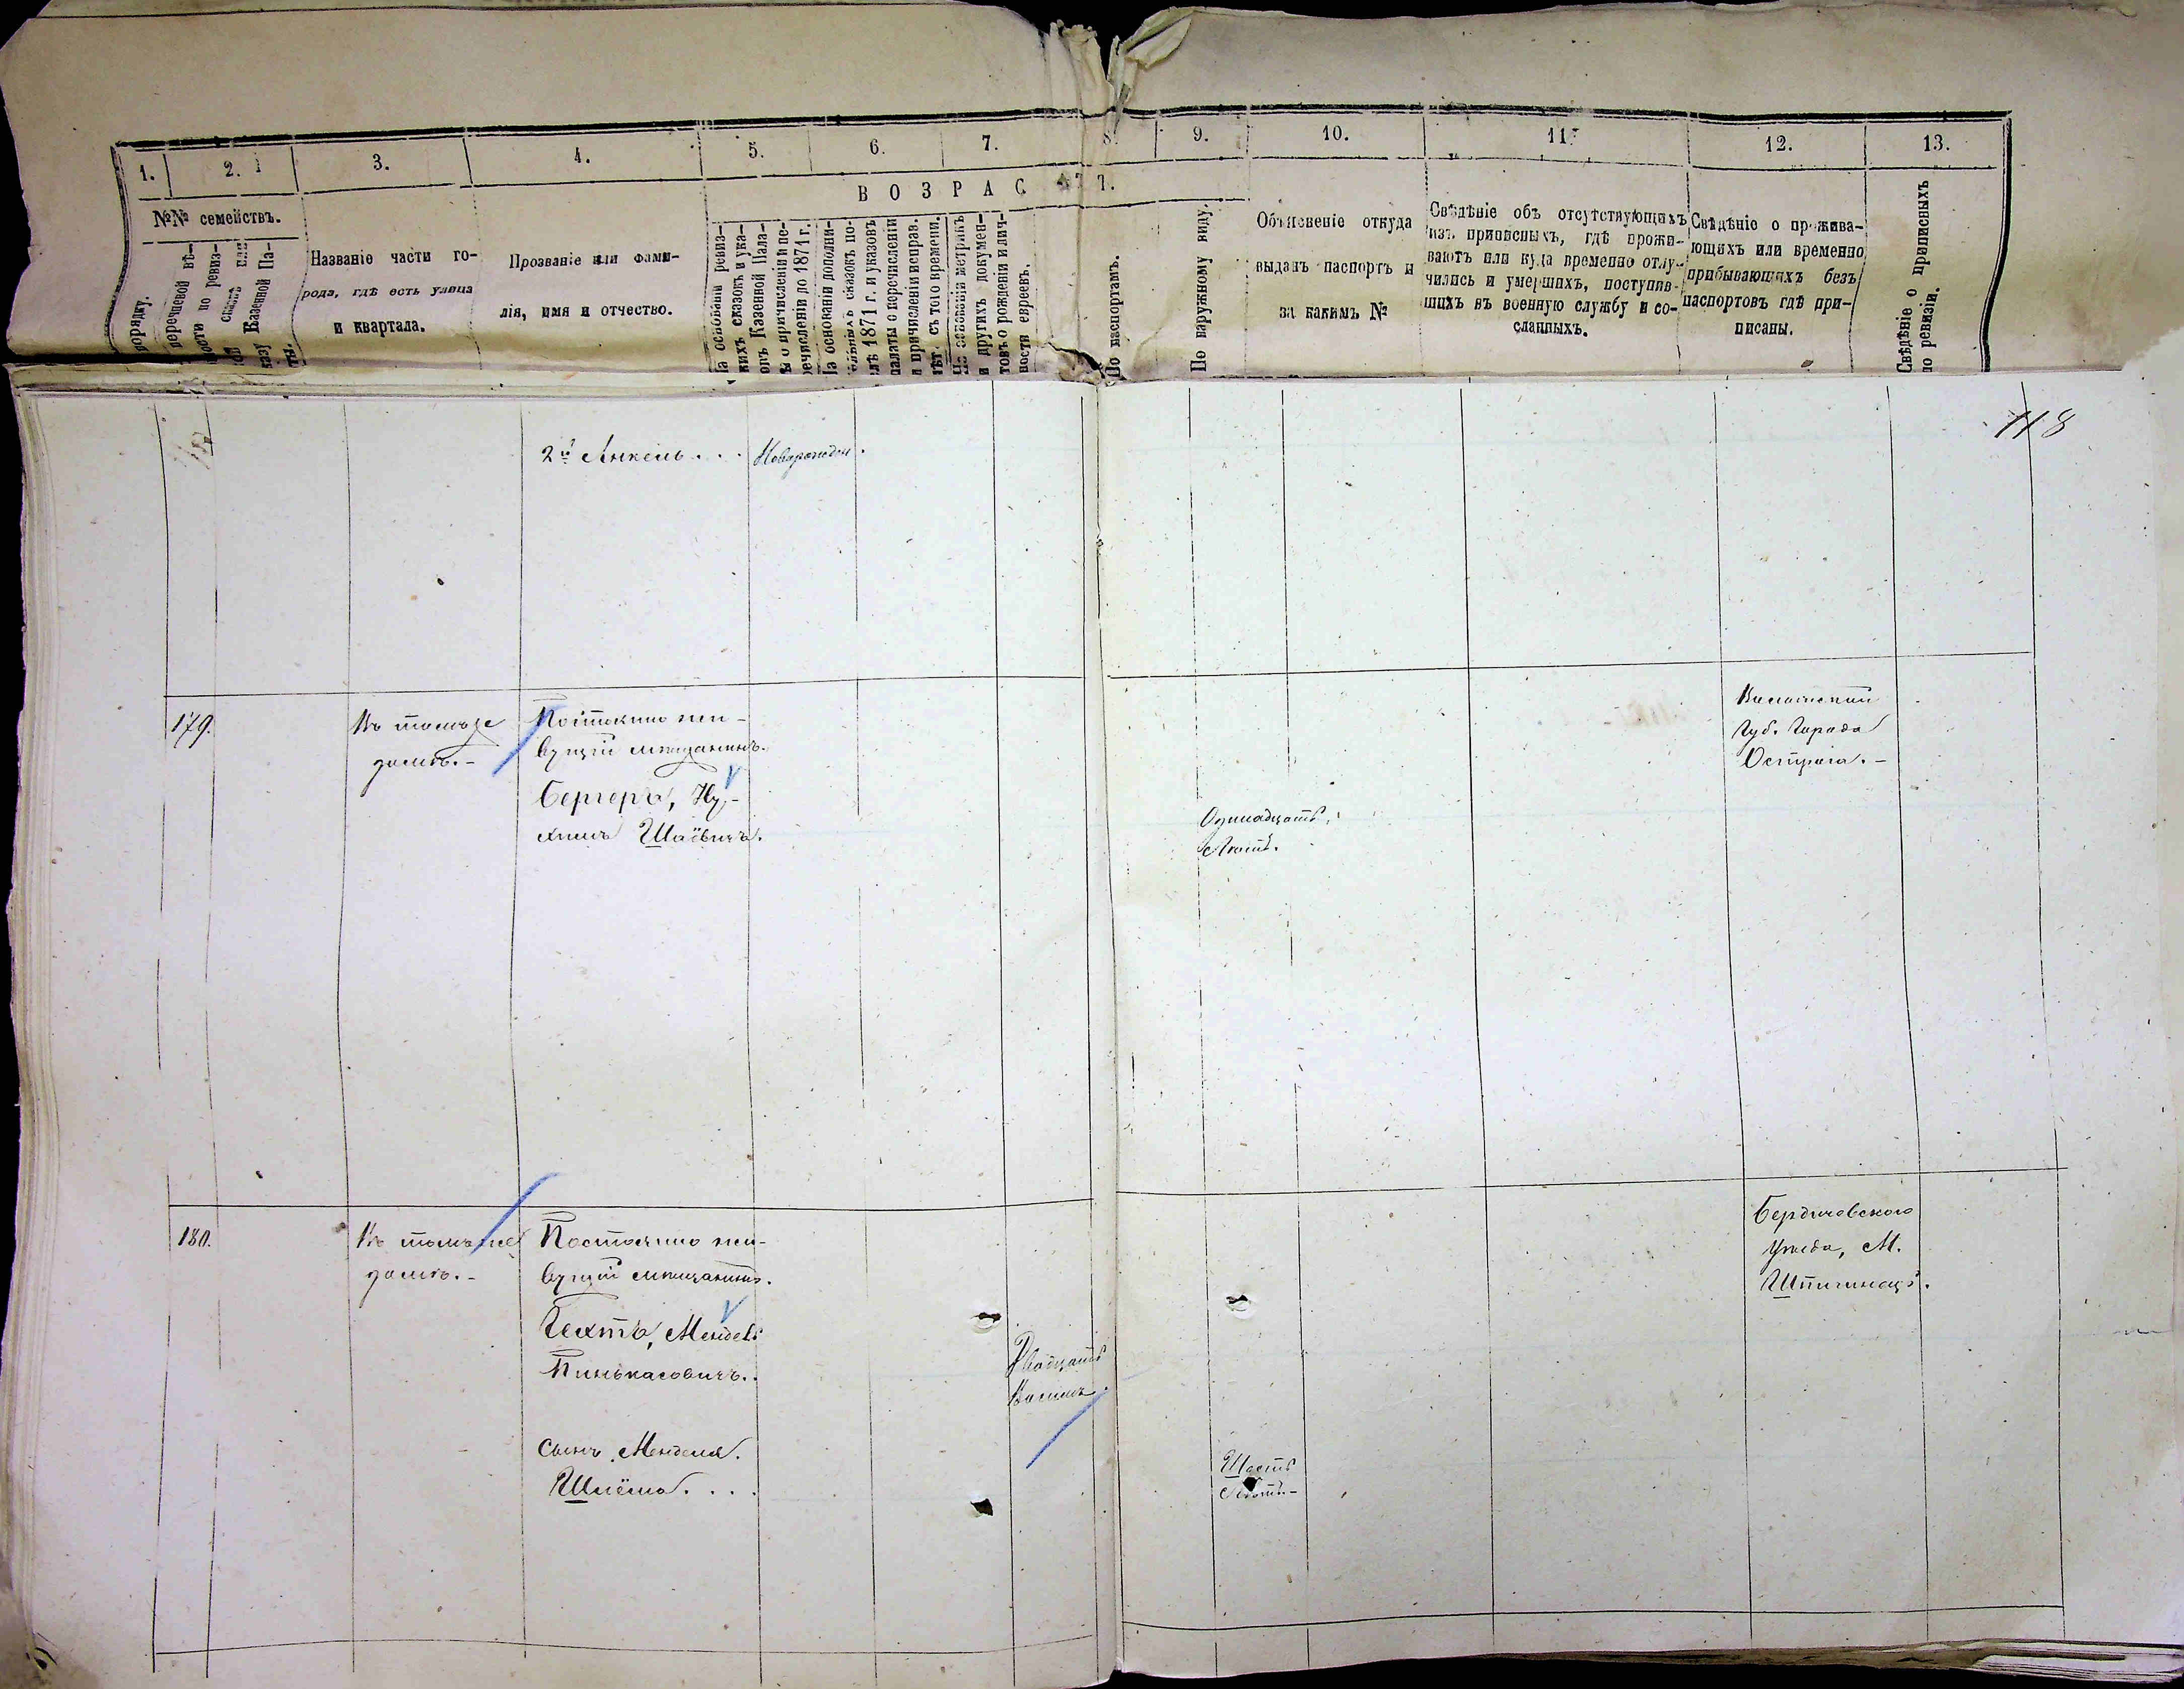 1. 2. 3. 4. 5. 6. 7. 8. 9. 10. 11. 12. 13.
ВОЗРАСТ.
№№ семействъ.
порядку.
перечневой вѣ-
ности по ревиз-
сказкѣ или
казу Казенной Па-
ты.
Названіе части го-
рода, гдѣ есть улица
и квартала.
Прозваніе или фами-
лія, имя и отчество.
На основаніи ревиз-
кихъ сказокъ и ука-
овъ Казенной Пала-
ы о причисленіи и пе-
речисленіи до 1871 г.
На основаніи дополни-
ельныхъ сказокъ по-
слѣ 1871 г. и указовъ
палаты о перечисленіи
и причисленіи исправ.
лѣт. съ того времени.
На основаніи метрикъ
и другихъ докумен-
товъ о рожденіи и лич-
ности евреевъ.
По паспортамъ.
По наружному виду.
Объясненіе откуда
выданъ паспортъ и
за какимъ №
Свѣдѣніе объ отсутствующихъ
изъ приписныхъ, гдѣ прожи-
ваютъ или куда временно отлу-
чились и умершихъ, поступив-
шихъ въ военную службу и со-
сланныхъ.
Свѣдѣніе о прожива-
ющихъ или временно
прибывающихъ безъ
паспортовъ гдѣ при-
писаны.
Свѣдѣніе о приписныхъ
по ревизіи.
118
2й Анкель... Новорожден.
179.
Въ томъ же
домѣ.-
Постоянно жи-
вущій мѣщанинъ.
Бергеръ, Ну-
химъ Шаевичъ.
Одинадцать
лѣтъ.
Волынской
Губ. Города
Острога.-
180.
Въ томъ же
домѣ.-
Постоянно жи-
вущій мѣщанинъ.
Гехтъ, Мендель
Пинькасовичъ..
Двадцать
Восемь.
Сынъ Менделя.
Шлёма....
Шесть
лѣтъ.-
Бердичевского
уѣзда, М.
Шпичинецъ.